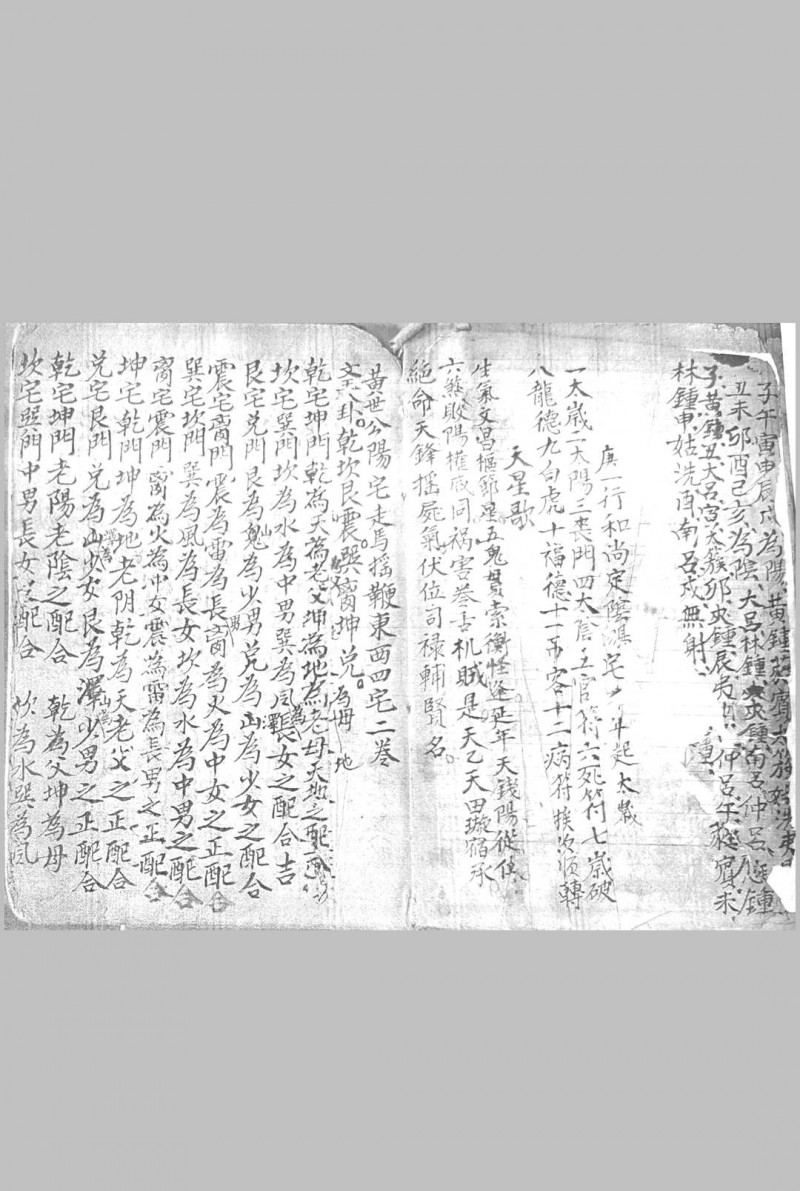 子午寅申辰戌為陽黃鍾蕤賓太簇姑洗夷
丑未卯酉己亥為陰大呂林鍾夾鍾南呂仲呂應鍾
子黃鍾丑大呂寅太簇卯夾鍾辰姑洗仲呂午蕤賓未
林鍾申姑洗酉南呂戌無射
唐一行和尚定陰陽宅年起太歲
一太歲二太陽三喪門四太陰五官符六死符七歲破
八龍德九白虎十福德十一吊客十二病符挨次順轉
天星歌
生氣文昌樞節星五鬼貫索衡怪逢延年天錢陽從
六煞敗陽權威同禍害卷舌机賊是天乙天田璇宿承
絕命天鋒搖屍氣伏位司祿輔賢名
黃世公陽宅走馬搖鞭東西四宅二巻
文王八卦乾坎艮震巽离坤兑為母地
乾宅坤門乾為天為老父坤為地為老母天地之配
坎宅巽門坎為水為中男巽為風長女之配合吉
艮宅兑門艮為山為少男兑為山為少女之配合
震宅离門震為雷為長男离為火為中女之正配合
巽宅坎門巽為風為長女坎為水為中男之配合
离宅震門离為火為中女震為雷為長男之正配合
坤宅乾門坤為地老阴乾為天老父之正配合
兑宅艮門兑為山少女艮為澤少男之正配合
乾宅坤門老陽老陰之配合乾為父坤為母
坎宅巽門中男長女之配合坎為水巽為風